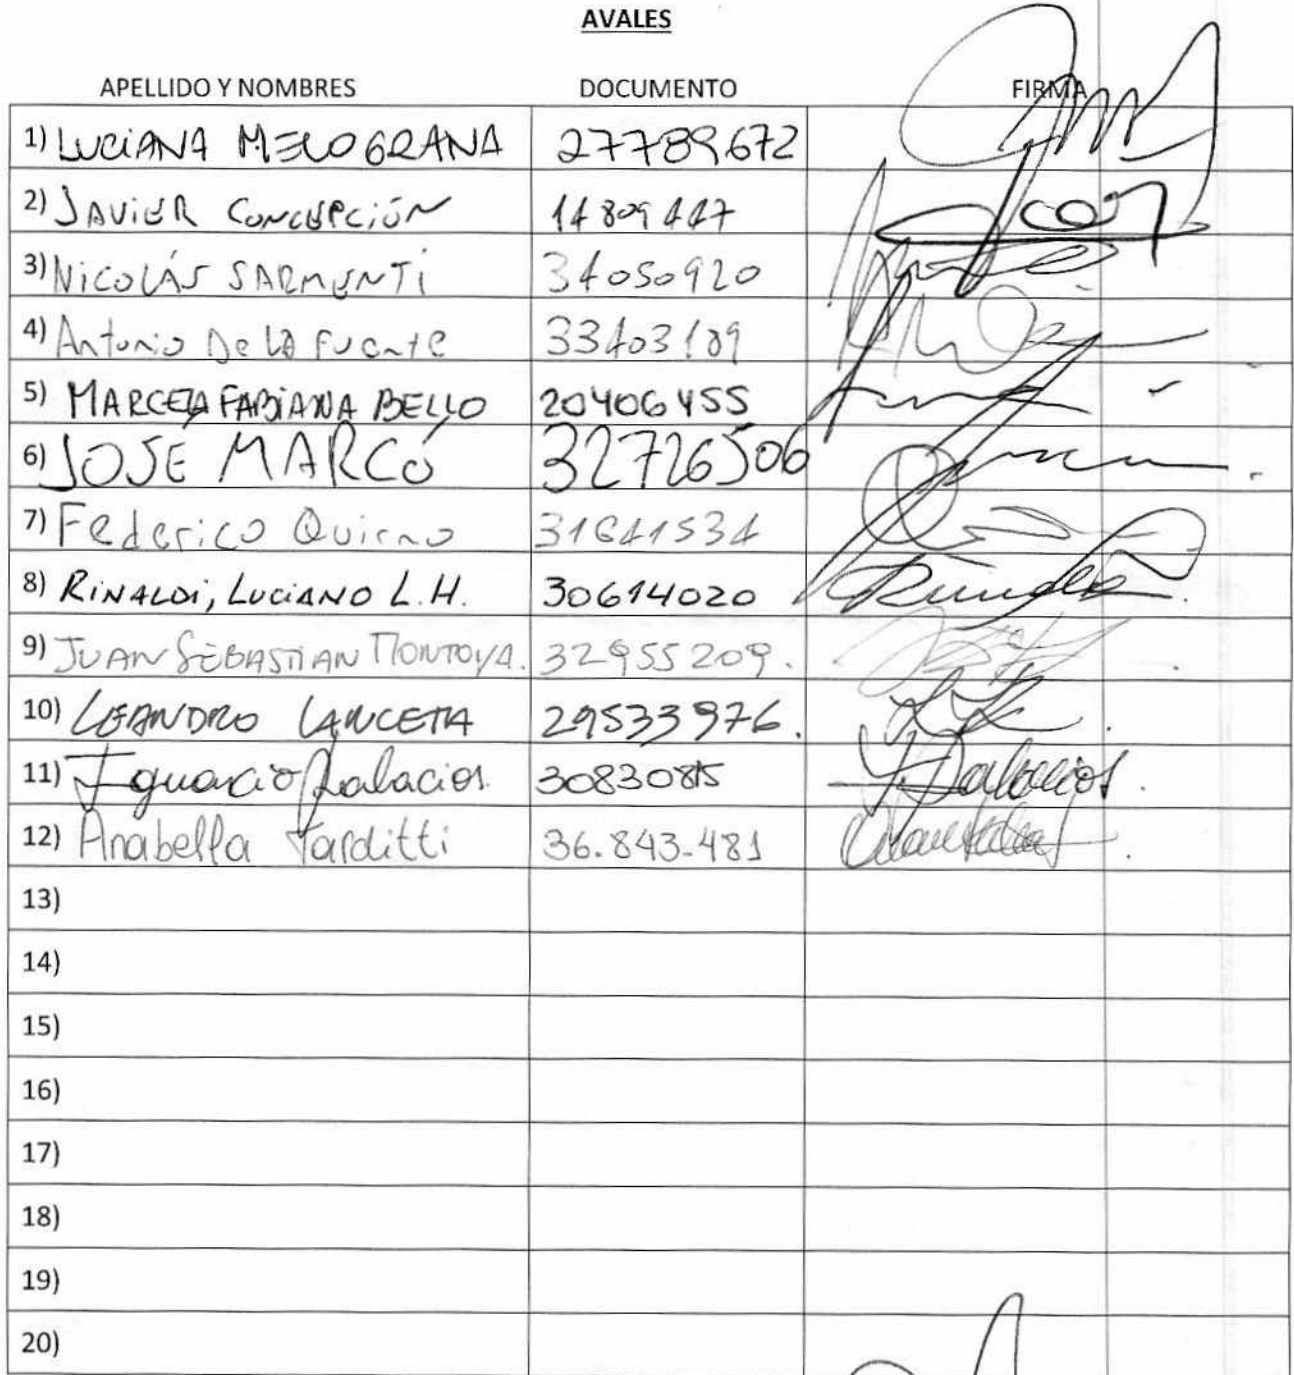 AVALES
APELLIDO Y NOMBRES DOCUMENTO FIRMA
1) LUCIANA MELOGRANA 27789672
2) JAVIER CONCEPCIÓN 14809447
3) NICOLÁS SARMENTI 34050920
4) Antonio De La Fuente 33403189
5) MARCELA FABIANA BELLO 20406455
6) JOSÉ MARCÓ 32726506
7) Federico Quirno 31641534
8) RINALDI, LUCIANO L.H. 30614020
9) JUAN SEBASTIAN MONTOYA. 32955209.
10) LEANDRO LANCETA 29533976.
11) Ignacio Palacios. 30830815 Palacios.
12) Anabella Tarditti 36.843.481
13)
14)
15)
16)
17)
18)
19)
20)